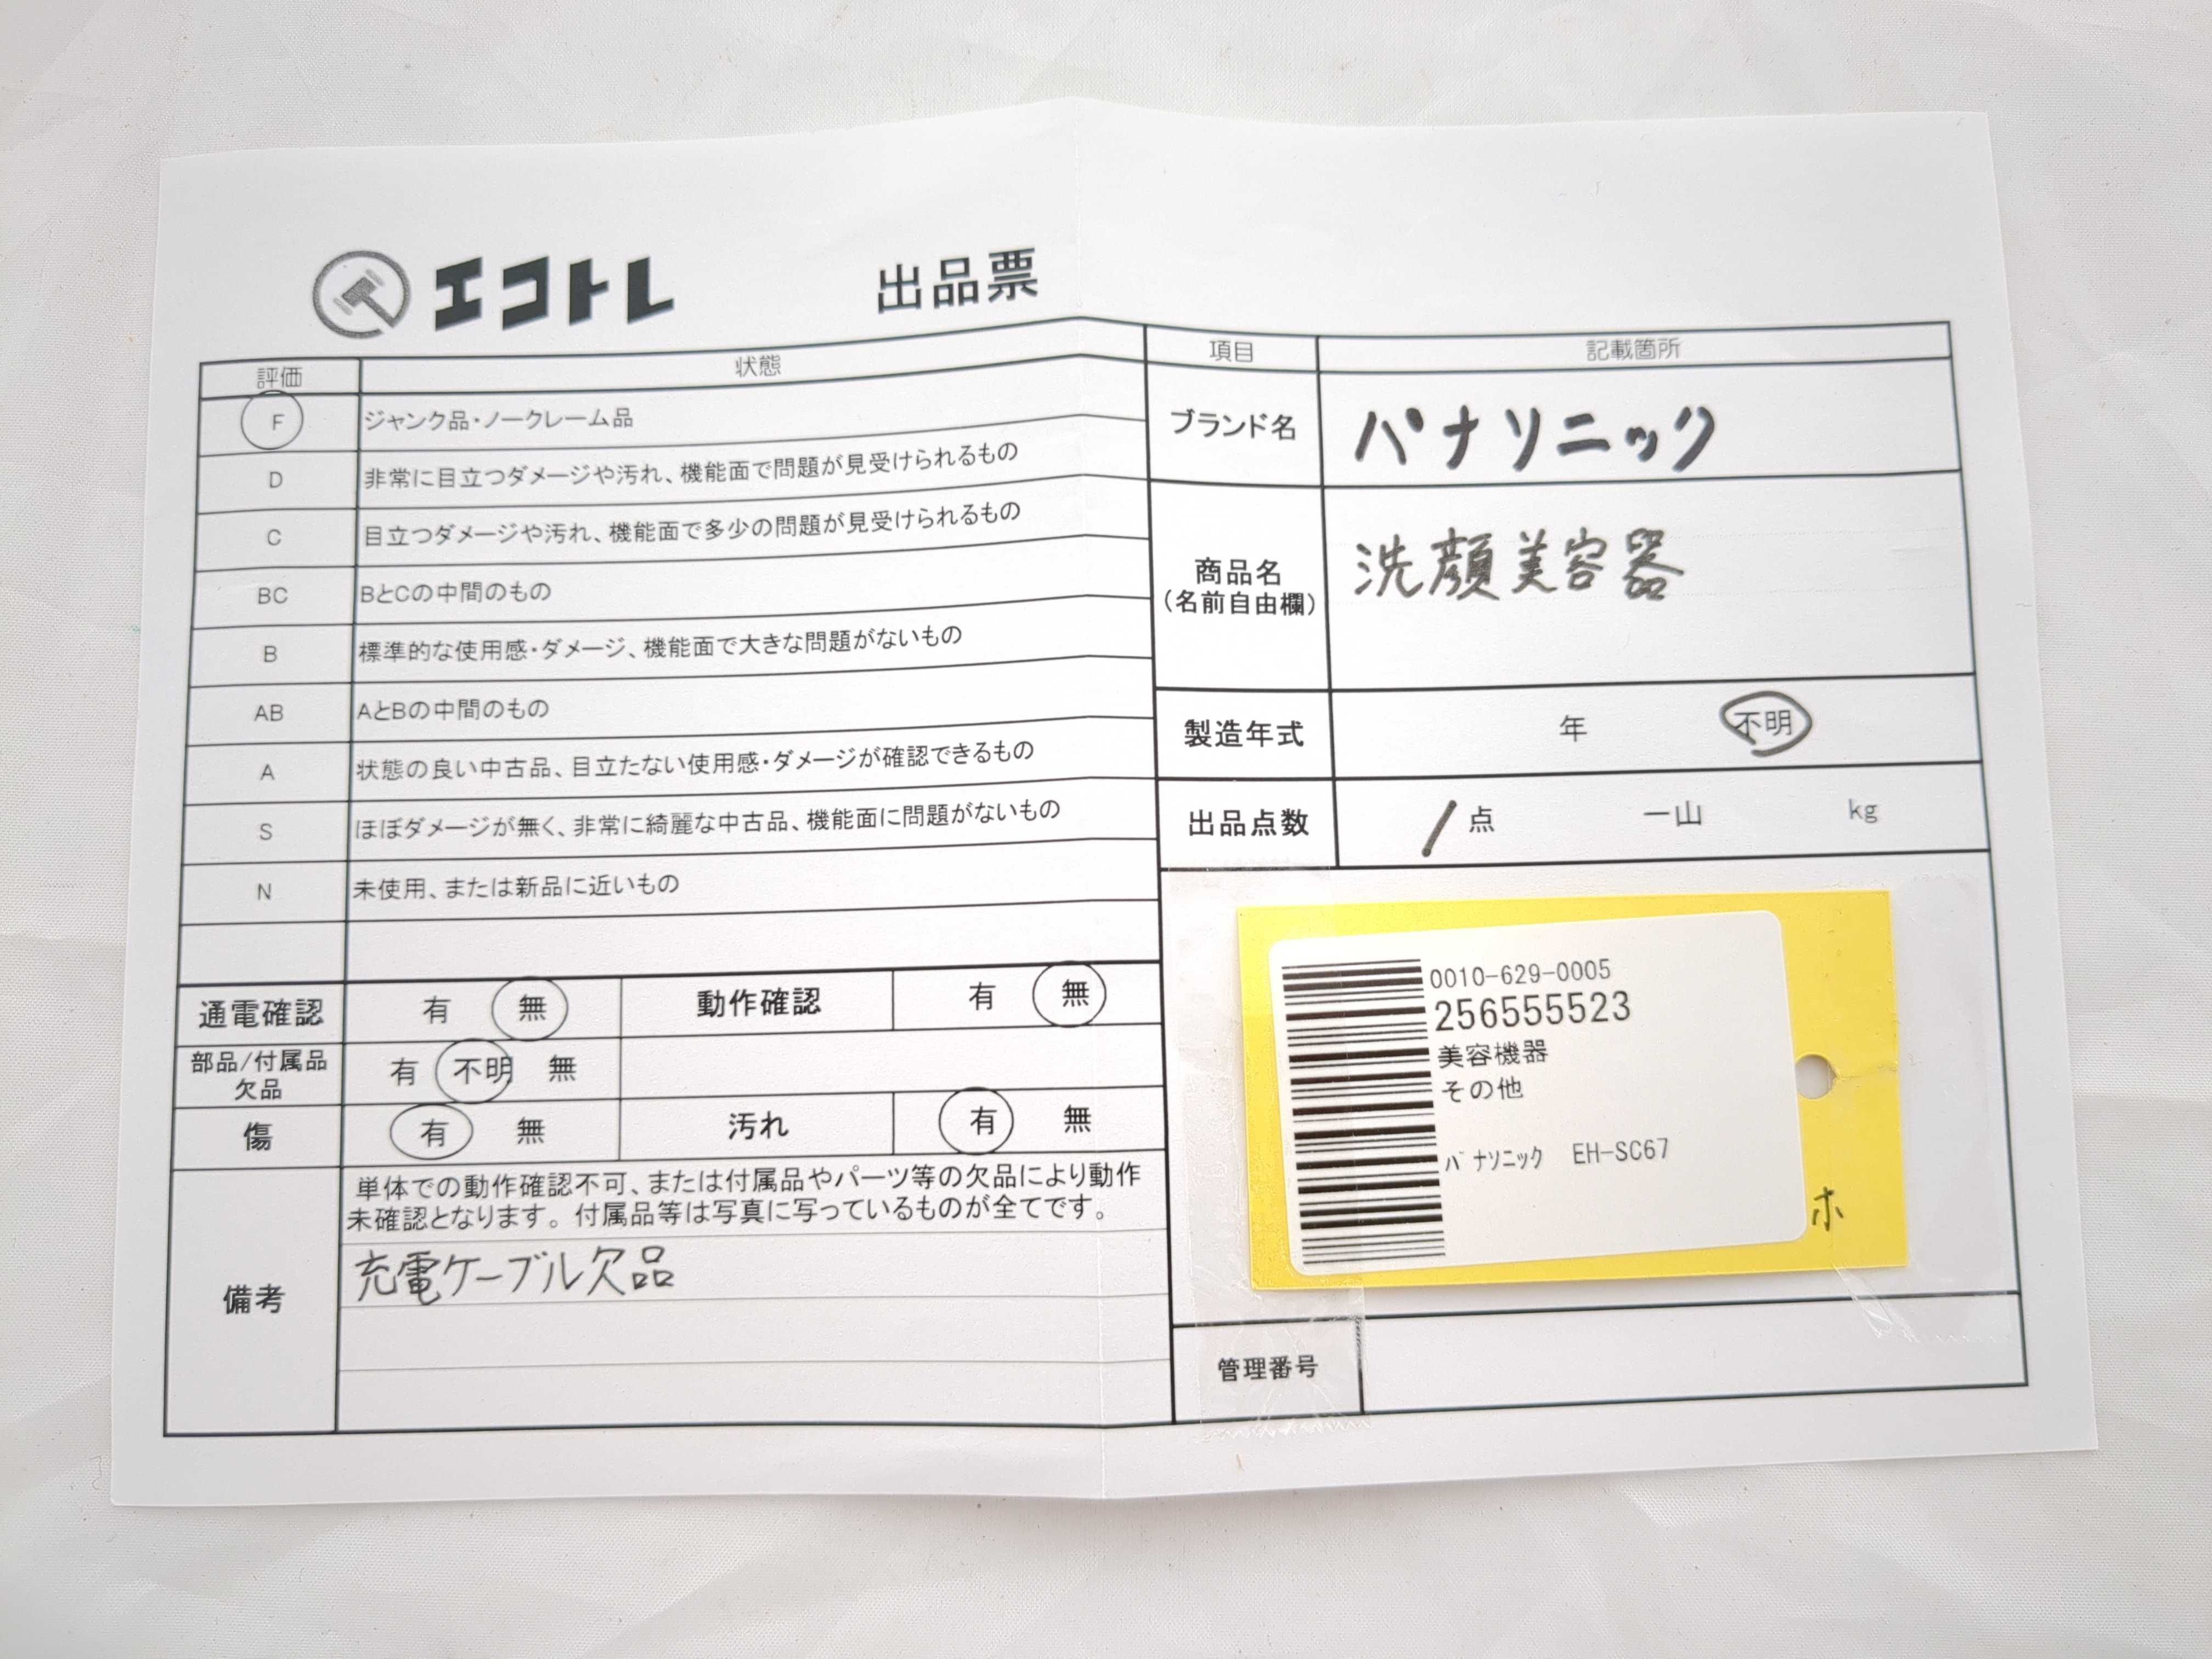 エコトレ 出品票
評価 状態
F ジャンク品・ノークレーム品
D 非常に目立つダメージや汚れ、機能面で問題が見受けられるもの
C 目立つダメージや汚れ、機能面で多少の問題が見受けられるもの
BC BとCの中間のもの
B 標準的な使用感・ダメージ、機能面で大きな問題がないもの
AB AとBの中間のもの
A 状態の良い中古品、目立たない使用感・ダメージが確認できるもの
S ほぼダメージが無く、非常に綺麗な中古品、機能面に問題がないもの
N 未使用、または新品に近いもの
通電確認 有 無 動作確認 有 無
部品/付属品
欠品 有 不明 無
傷 有 無 汚れ 有 無
備考
単体での動作確認不可、または付属品やパーツ等の欠品により動作
未確認となります。付属品等は写真に写っているものが全てです。
充電ケーブル欠品
項目 記載箇所
ブランド名 パナソニック
商品名
(名前自由欄) 洗顔美容器
製造年式 年 不明
出品点数 1点 一山 kg
0010-629-0005
256555523
美容機器
その他
パナソニック EH-SC67
ホ
管理番号